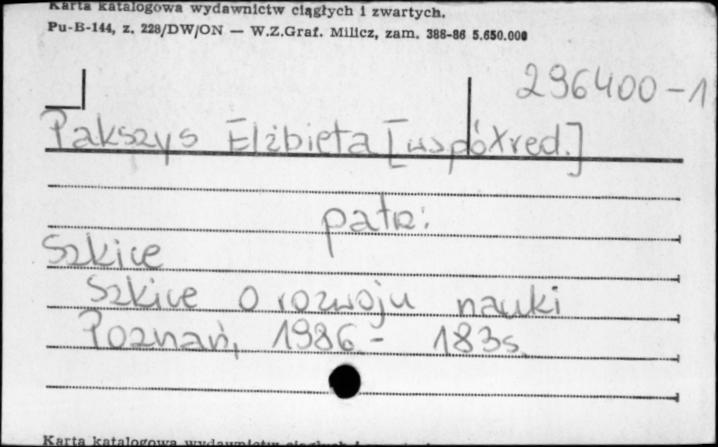 Karta katalogowa wydawnictw ciągłych i zwartych.
Pu-B-144, z. 228/DW/ON — W.Z.Graf. Milicz, zam. 388-86 5.650.000
296400-1
Pakszys Elżbieta [współred.]
patrz:
Szkice
Szkice o rozwoju nauki
Poznań, 1986.- 183s.
Karta katalogowa wydawnictw ciągłych i